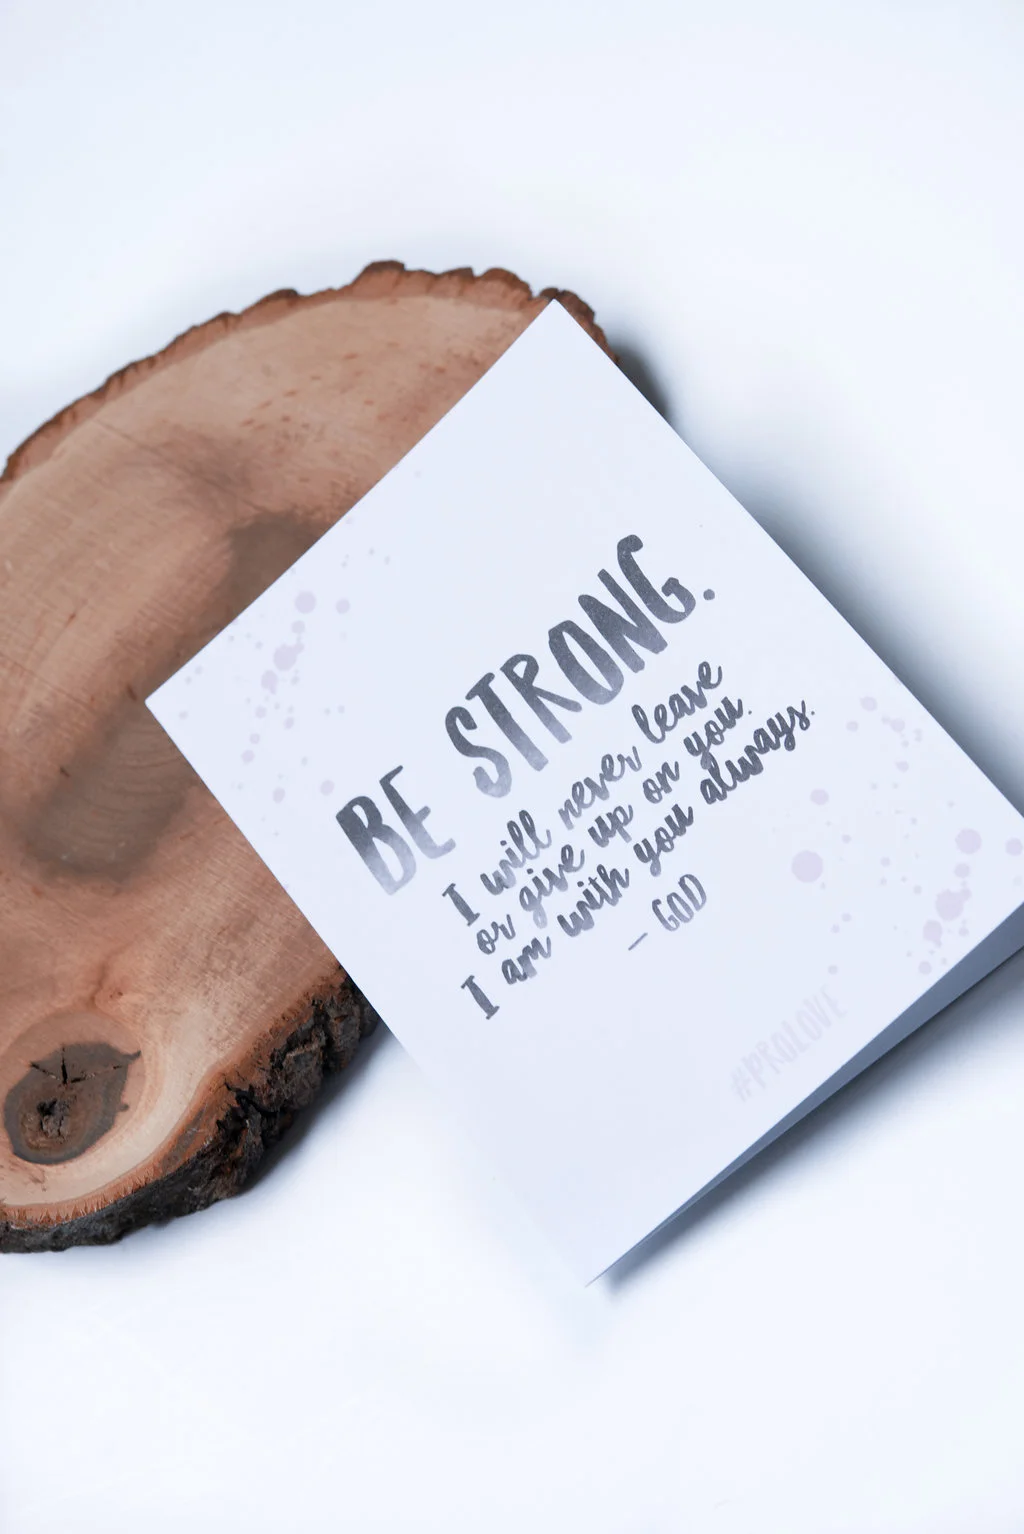 BE STRONG.
I will never leave
or give up on you.
I am with you always.
- GOD
#PROLOVE